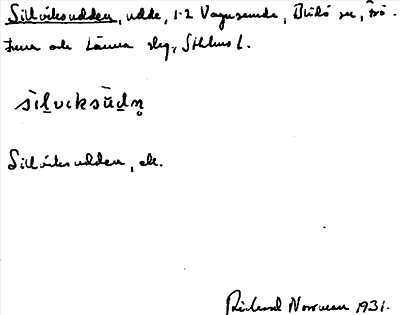 Sillviksudden, udde, 1.2 Vagnsunda, Blidö sn, Frö-
tuna och Länna slg, Sthlms l.
silvɩksudn̥
Sillviksudden, ek.
Rickard Norrman 1931.